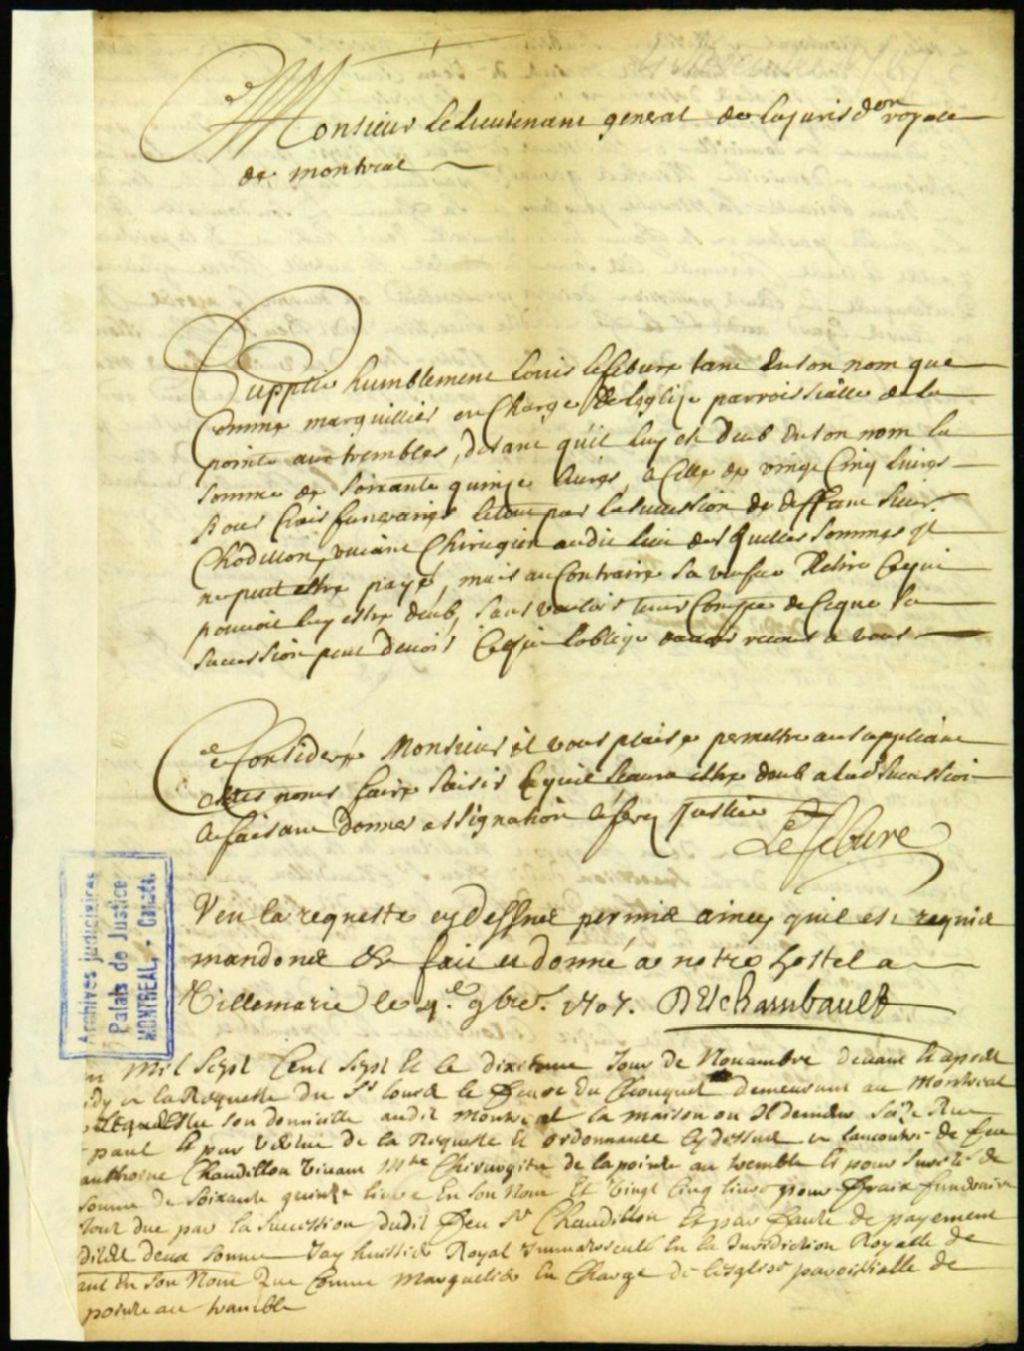 Monsieur Le Lieutenant general de la juris don royalle
de montreal
Supplie humblement Louis Lefebure tant En son nom que
Comme marguillier en Charge de leglize parroissialle de la
pointe aux trembles, disant qu'il luy est deub En son nom la
somme de soixante quinze livres, & Celle de vingt Cinq livres
pour frais funeraires le tout par la succession de deffunt sieur
Chodillon, vivant Chirugien audit lieu des quelles sommes Il
ne peut estre payé, mais au Contraire sa veufve Retire Ce qui
pouvoit luy estre deub, sans vouloir tenir Compte de Ce que la
succession peut devoir Ce qui l'oblige davoir recours a vous
Ce Consideré Monsieur il vous plaise permettre au suppliant
esdits noms faire saisir Ce qu'il scaura estre deub a lad. succession
Ce faisant donner assignation & ferez justice
LeFebure
Veu la requeste cy dessus permis ainsy quil est requis
mandons &c fait et donné a notre hostel a
Villemarie le 4e. 9bre. 1707. Deschambault
Mil Sept Cent Sept Et le dixiesme Jour de Nouambre devant & apres
midy a la Requeste du Sr Louis le Feure du Chouquet demeurant au Montreal
Son domicille audit Montreal la maison ou Il demeure Size Rue
paul Et par Vertue de la Requeste & ordonnance Cy dessus a lancontre de feu
anthoine Chaudillon Vivant Mtre Chirurgien de la pointe au tremble & pour Sureté de
Somme de Soixante quinze livre En Son Nom Et Vingt Cinq livre pour Fraix funeraire
Tout due par la Sucession dudit Feu Sr Chaudillon Et par Faute de payement
dites deux Somme Jay huissier Royal Immatriculé En la Jurisdiction Royalle de
ant En Son Nom Que Comme Marguellier En Charge de leglise paroissialle de
pointe au tramble
Archives judiciaires
Palais de Justice
MONTREAL, - Canada.